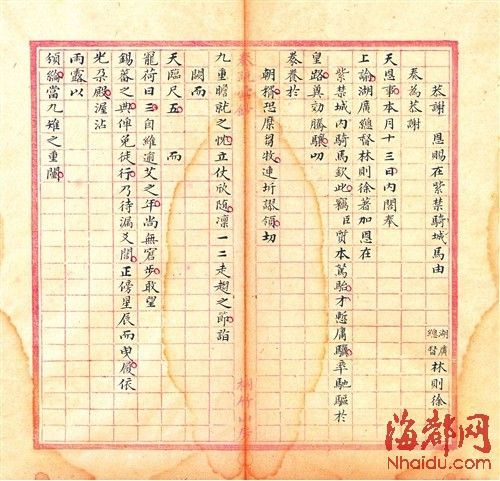 恭謝　恩賜在紫禁騎城馬由
湖廣總督林則徐
奏為恭謝
天恩事本月十三日內閣奉
上諭湖廣總督林則徐著加恩在
紫禁城內騎馬欽此竊臣質本駑駘才慙庸驥卒馳驅於
皇路莫効騰驤叨
豢養於
朝恐糜芻牧連圻謬領切
九重瞻就之忱立仗欣随凜一二走趨之節詣
闕而
天臨尺五　而
寵荷日三自維適艾之年尚無窘步敢望
錫蕃之典俾免徒行乃待漏正傍星辰而曳履依
光朵殿渥沾
雨露以
頒綸當九雉之重闉
海都网
Nhaidu.com